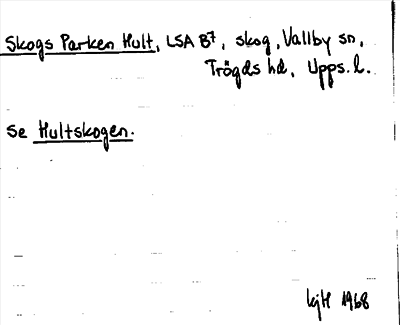 Skogs Parken Hult, LSA B7, skog, Vallby sn,
Trögds hd, Upps. l.
Se Hultskogen.
kjH 1968